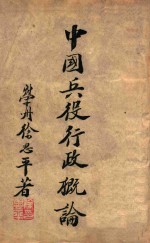 中國兵役行政概論
榮丹徐思平著